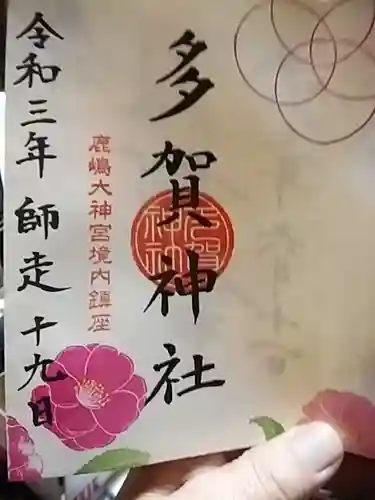 多賀神社
鹿嶋大神宮境内鎮座
令和三年師走十九日